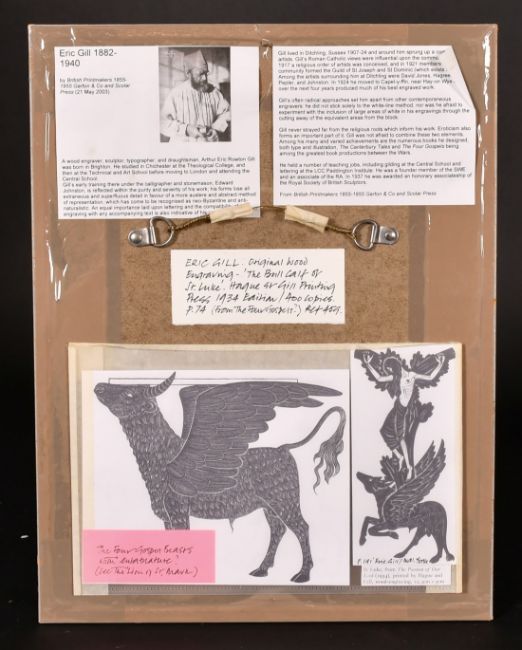 Eric Gill 1882-
1940
by British Printmakers 1855-
1955 Garton & Co and Scolar
Press (21 May 2003)
A wood engraver, sculptor, typographer, and draughtsman, Arthur Eric Rowton Gill
was born in Brighton. He studied in Chichester at the Theological College, and
then at the Technical and Art School before moving to London and attending the
Central School.
Gill's early training there under the calligrapher and stonemason, Edward
Johnston, is reflected within the purity and severity of his work; his forms lose all
extraneous and superfluous detail in favour of a more austere and abstract method
of representation, which has come to be recognised as neo-Byzantine and anti-
naturalistic. An equal importance laid upon lettering and the compatibility of
engraving with any accompanying text is also indicative of his
Gill lived in Ditchling, Sussex 1907-24 and around him sprung up a
artists. Gill's Roman Catholic views were influential upon the
1917 a religious order of artists was conceived, and in 1921
community formed the Guild of St Joseph and St Dominic (which exists
Among the artists surrounding him at Ditchling were David Jones, Hagreen,
Pepler, and Johnston. In 1924 he moved to Capel-y-ffin, near Hay on Wye
over the next four years produced much of his best engraved work.
Gill's often radical approaches set him apart from other contemporaneous
engravers: he did not stick solely to the white-line method, nor was he afraid to
experiment with the inclusion of large areas of white in his engravings through the
cutting away of the equivalent areas from the block.
Gill never strayed far from the religious roots which inform his work. Eroticism also
forms an important part of it. Gill was not afraid to combine these two elements.
Among his many and varied achievements are the numerous books he designed,
both type and illustration, The Canterbury Tales and The Four Gospels being
among the greatest book productions between the Wars.
He held a number of teaching jobs, including gilding at the Central School and
lettering at the LCC Paddington Institute. He was a founder member of the SWE
and an associate of the RA. In 1937 he was awarded an honorary associateship of
the Royal Society of British Sculptors.
From British Printmakers 1855-1955 Garton & Co and Scolar Press
ERIC GILL. Original Wood
Engraving - 'The Bull Calf of
St. Luke'. Hague & Gill Printing
Press 1934 Edition / 400 copies.
P.74 (from 'The Four Gospels?') Ref 459.
The Four Gospel Beasts
(See The Lion of St. Mark)
St Luke, from The Passion of Our
Lord (1934), printed by Hague and
Gill, wood-engraving,